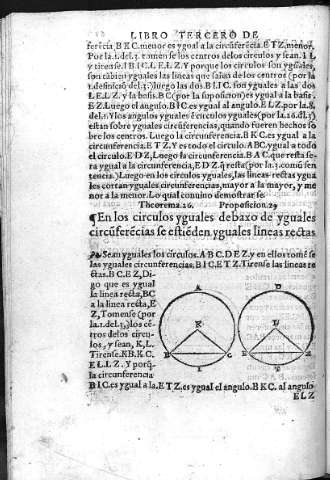 LIBRO TERCERO DE
ferēcia, B K C. menor es ygual a la circūferēcia. E T Z. menor.
Por la. 1. del. 3. tomēse los centros delos circulos y sean. I L
y tirense. I B I C. L E L Z. Y porque los circulos son yguales,
son tābiē yguales las lineas que salen de los centros (por la
1. definiciō del. 3.) luego las dos. B I I C. son yguales a las dos
L E L Z. y la basis. B C (por la suposiciō) es ygual a la basis.
E Z. Luego el angulo. B I C. es ygual al angulo. E L Z. por la. 8.
del. 1. Y los angulos yguales ē circulos yguales (por la. 26. dl. 3)
estan sobre yguales circunferencias, quando fueren hechos so
bre los centros. Luego la circunferencia. B K C. es ygual a la
circunferencia. E T Z. Y es todo el circulo. A B C. ygual a todo
el circulo. E D Z, Luego la circunferencia. B A C. que resta se-
ra ygual a la circunferencia, E D Z. q̄ resta (por la. 3. comū sen
tencia.) Luego en los circulos yguales, las lineas rectas ygua
les cortan yguales circunferencias, mayor a la mayor, y me
nor a la menor. Lo qual conuino demostrar se.
Theorema. 26. Proposicion. 29
¶ En los circulos yguales debaxo de yguales
circūferēcias se estiēden, yguales lineas rectas
Sean yguales los circulos. A B C. D E Z. y en ellos tomē se
las yguales circunferencias. B I C. E T Z. Tirense las lineas re
ctas. B C. E Z, Di-
go que es ygual
la linea recta, BC
a la linea recta, E
Z, Tomense (por
la. 1. del. 3,) los cē-
tros delos circu-
los, y sean, K, L.
Tirense. K B. K C.
E L. L Z. Y porq̄
la circunferencia
B I C. es ygual a la. E T Z. es ygual el angulo. B K C. al angulo
E L Z